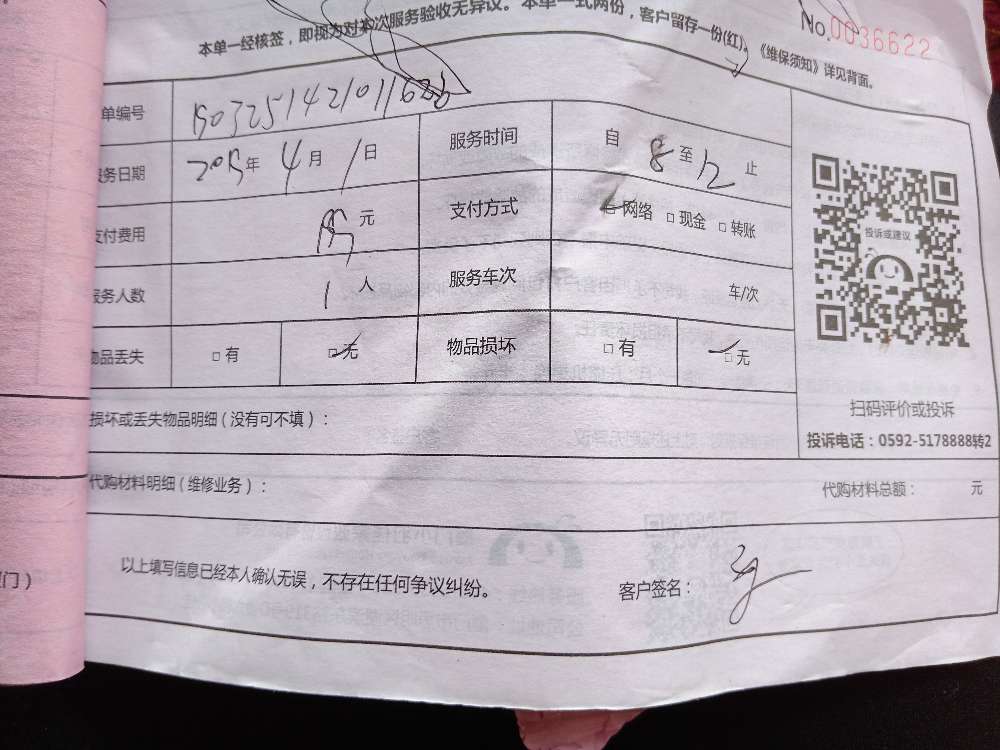 本单一经核签，即视为对本次服务验收无异议。本单一式两份，客户留存一份(红)。《维保须知》详见背面。
No.0036622
单编号
服务日期 年 4 月 1 日 服务时间 自 8 至 12 止
支付费用 元 支付方式 网络 □ 现金 □ 转账
服务人数 1 人 服务车次 车/次
物品丢失 □ 有 □ 无 物品损坏 □ 有 □ 无
投诉或建议
扫码评价或投诉
投诉电话：0592-5178888转2
损坏或丢失物品明细（没有可不填）：
代购材料明细（维修业务）： 代购材料总额： 元
以上填写信息已经本人确认无误，不存在任何争议纠纷。 客户签名：
门）